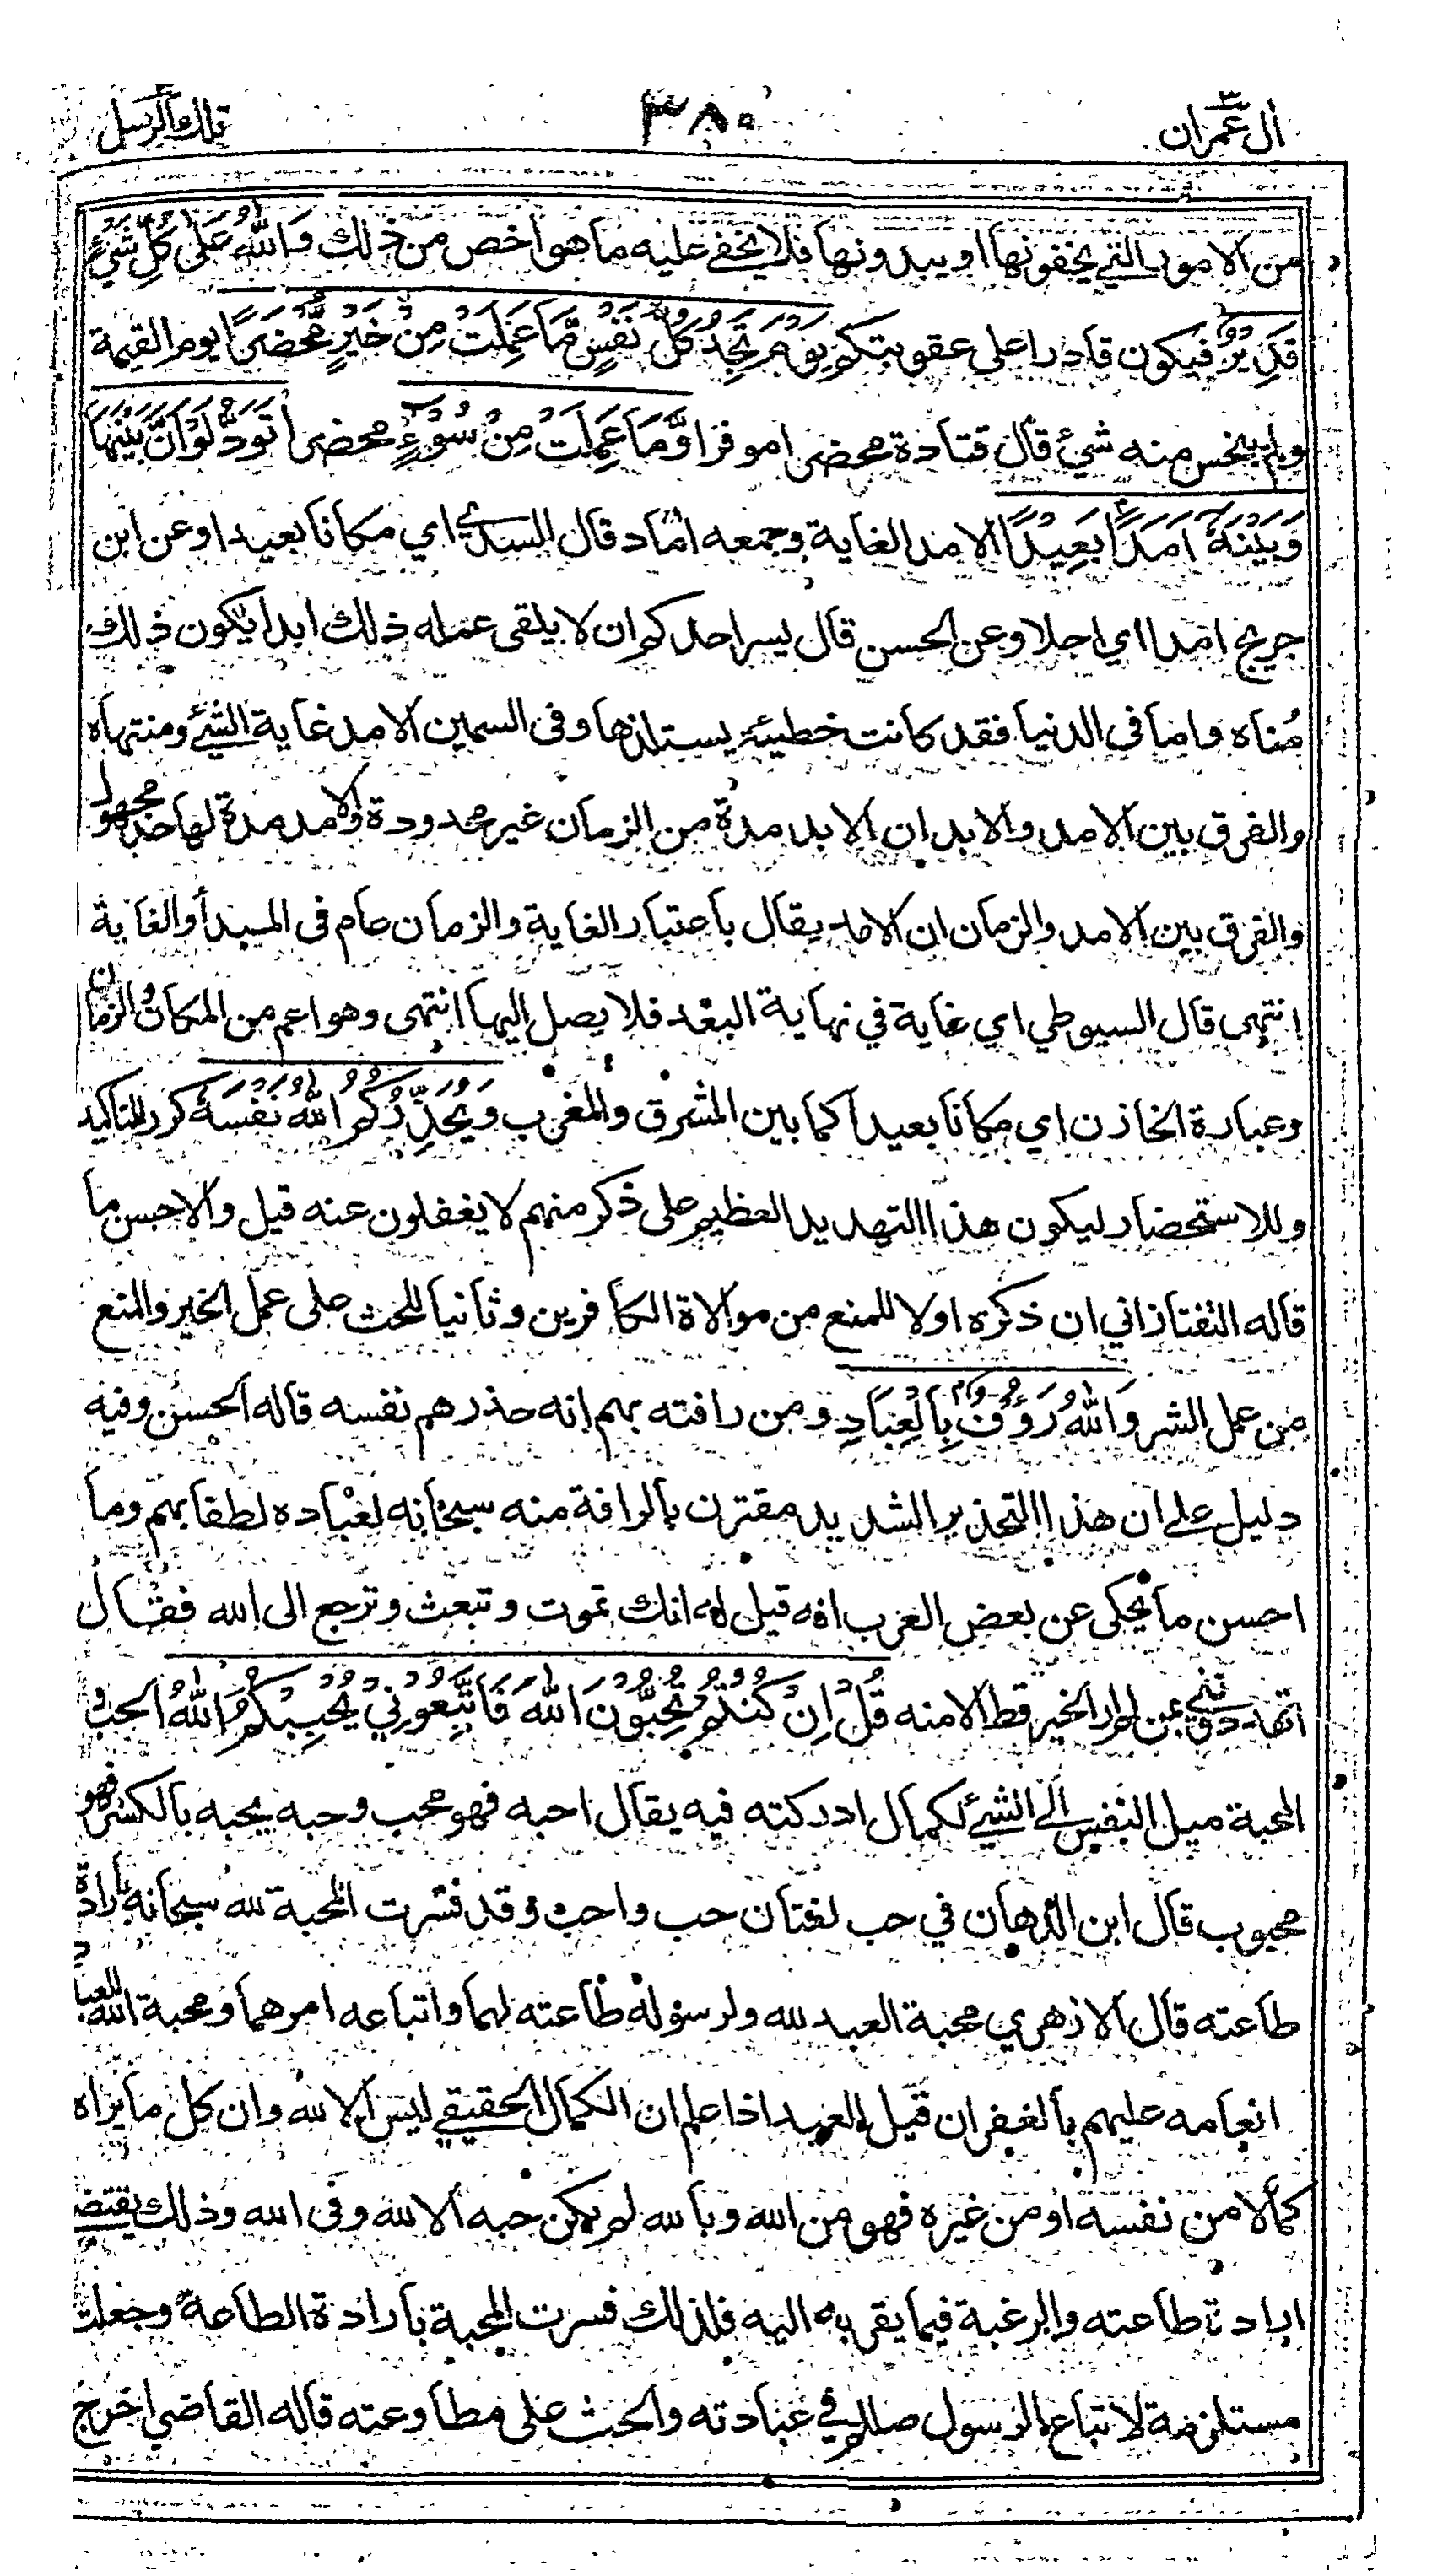 آل عمران ٣٨٠ تلك الرسل
من الامور التي يخفونها او يبدونها فلا يخفى عليه ما هو اخص من ذلك وَاللّٰهُ عَلىٰ كُلِّ شَيْءٍ
قَدِيْرٌ فيكون قادرا على عقوبتكم يَوْمَ تَجِدُ كُلُّ نَفْسٍ مَّا عَمِلَتْ مِنْ خَيْرٍ مُّحْضَرًا يوم القيمة
ولم يبخس منه شئ قال قتادة محضرا موفرا وَّمَا عَمِلَتْ مِنْ سُوْءٍ محضرا تَوَدُّ لَوْ اَنَّ بَيْنَهَا
وَبَيْنَهٗ اَمَدًا بَعِيْدًا الامد الغاية وجمعه آماد قال السدي اي مكانا بعيدا وعن ابن
جريج امدا اي اجلا وعن الحسن قال يسر احدكم ان لا يلقى عمله ذلك ابدا يكون ذلك
مُناه واما في الدنيا فقد كانت خطيئة يستلذها وفى السمين الامد غاية الشئ ومنتهاه
والفرق بين الامد والابد ان الابد مدة من الزمان غير محدودة والامد مدة لها حد مجهول
والفرق بين الامد والزمان ان الامد يقال باعتبار الغاية والزمان عام فى المبدأ والغاية
انتهى قال السيوطي اي غاية في نهاية البعد فلا يصل اليها انتهى وهو اعم من المكان والزمان
وعبارة الخازن اي مكانا بعيدا كما بين المشرق والمغرب وَيُحَذِّرُكُمُ اللّٰهُ نَفْسَهٗ كرر للتاكيد
وللاستحضار ليكون هذا التهديد العظيم على ذكر منهم لا يغفلون عنه قيل والاحسن ما
قاله التفتازاني ان ذكره اولا للمنع من موالاة الكافرين وثانيا للحث على عمل الخير والمنع
من عمل الشر وَاللّٰهُ رَؤُفٌ بِالْعِبَادِ ومن رافته بهم انه حذرهم نفسه قاله الحسن وفيه
دليل على ان هذا التحذير الشديد مقترن بالرافة منه سبحانه لعباده لطفا بهم وما
احسن ما يحكى عن بعض العرب انه قيل له انك تموت وتبعث وترجع الى الله فقال
اتهددونني بمن لم ار الخير قط الا منه قُلْ اِنْ كُنْتُمْ تُحِبُّوْنَ اللّٰهَ فَاتَّبِعُوْنِيْ يُحْبِبْكُمُ اللّٰهُ الحب و
المحبة ميل النفس الى الشئ لكمال ادركته فيه يقال احبه فهو محب وحبه يحبه بالكسر فهو
محبوب قال ابن الدهان في حب لغتان حب واحب وقد فسرت المحبة لله سبحانه بارادة
طاعته قال الازهري محبة العبد لله ولرسوله طاعته لهما واتباعه امرهما ومحبة الله للعباد
انعامه عليهم بالغفران قيل العبد اذا علم ان الكمال الحقيقي ليس الا لله وان كل ما يراه
كمالا من نفسه او من غيره فهو من الله وبالله لم يكن حبه الا لله وفى الله وذلك يقتضي
ارادة طاعته والرغبة فيما يقربه اليه فلذلك فسرت المحبة بارادة الطاعة وجعلت
مستلزمة لاتباع الرسول صللم في عبادته والحث على مطاوعته قاله القاضي اخرج